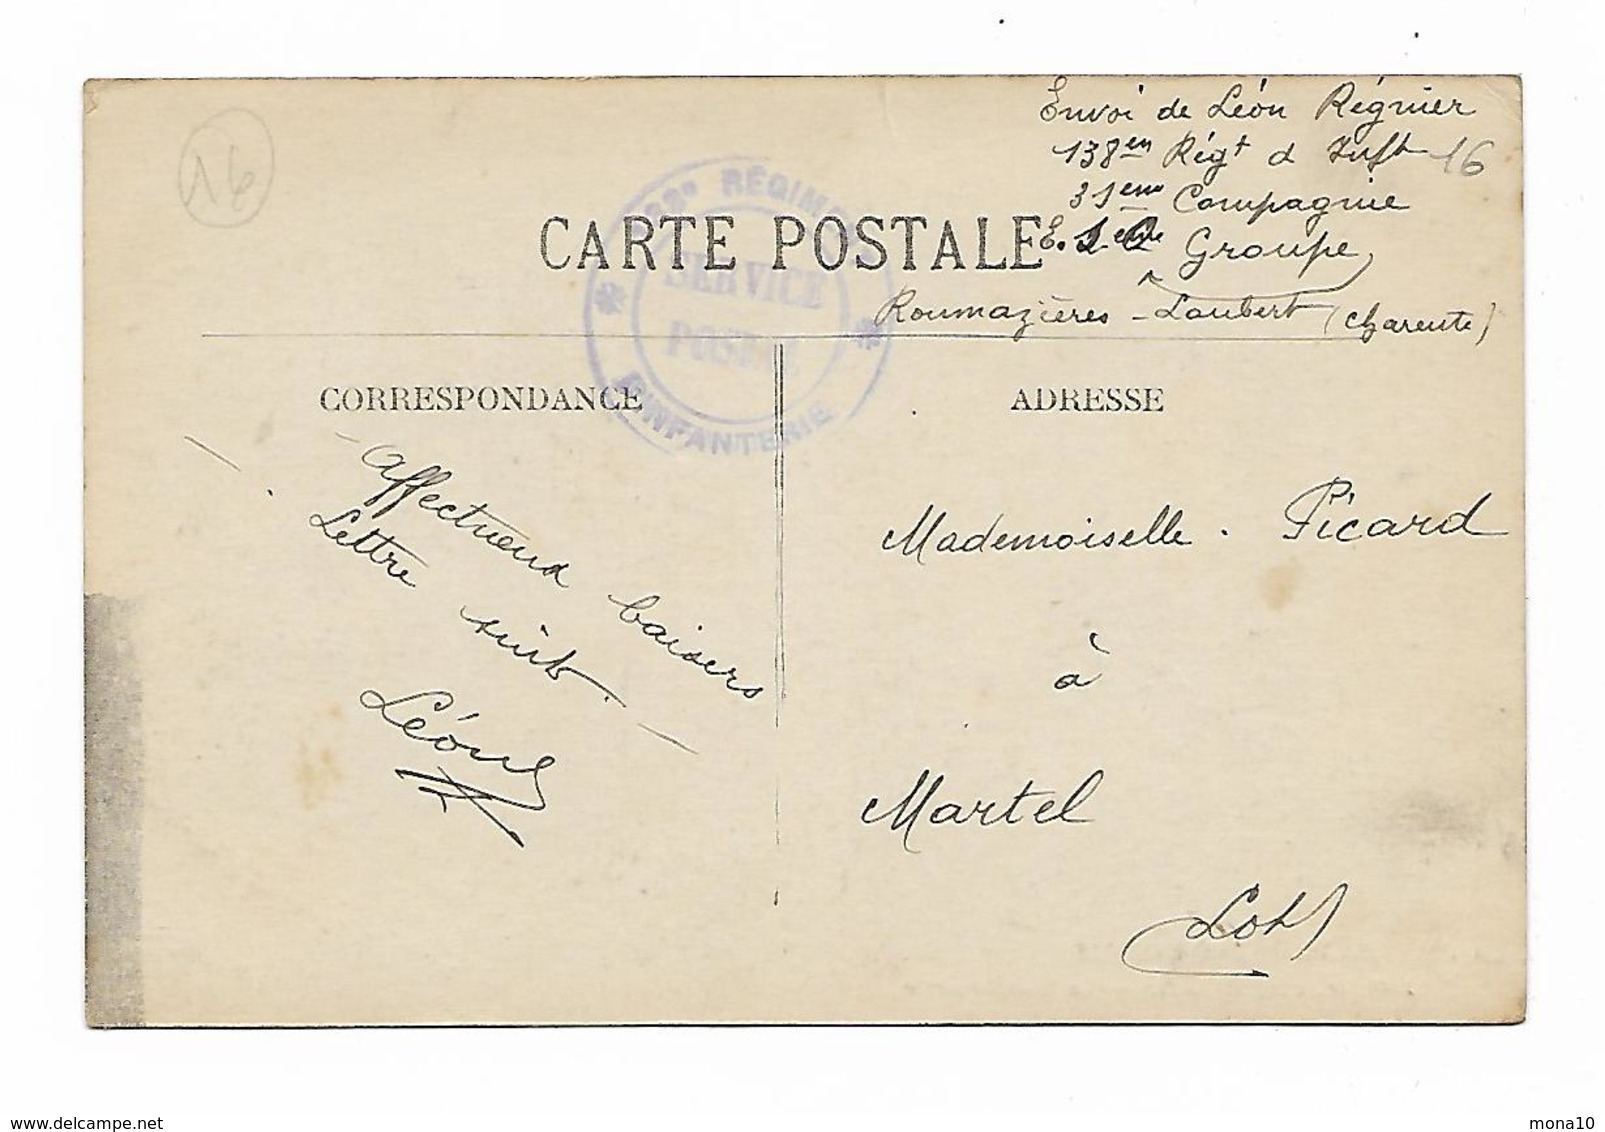 16
Envoi de Léon Régnier
138em Régt d Inft 16
31eme Compagnie
CARTE POSTALE
Groupe
Roumazières - Loubert (Charente)
RÉGIM
SERVICE
POSTAL
D'INFANTERIE
CORRESPONDANCE
ADRESSE
Affectueux baisers
Lettre suit.
Léon
Mademoiselle. Picard
à
Martel
(Lot)
https://www.delcampe.net
mona10